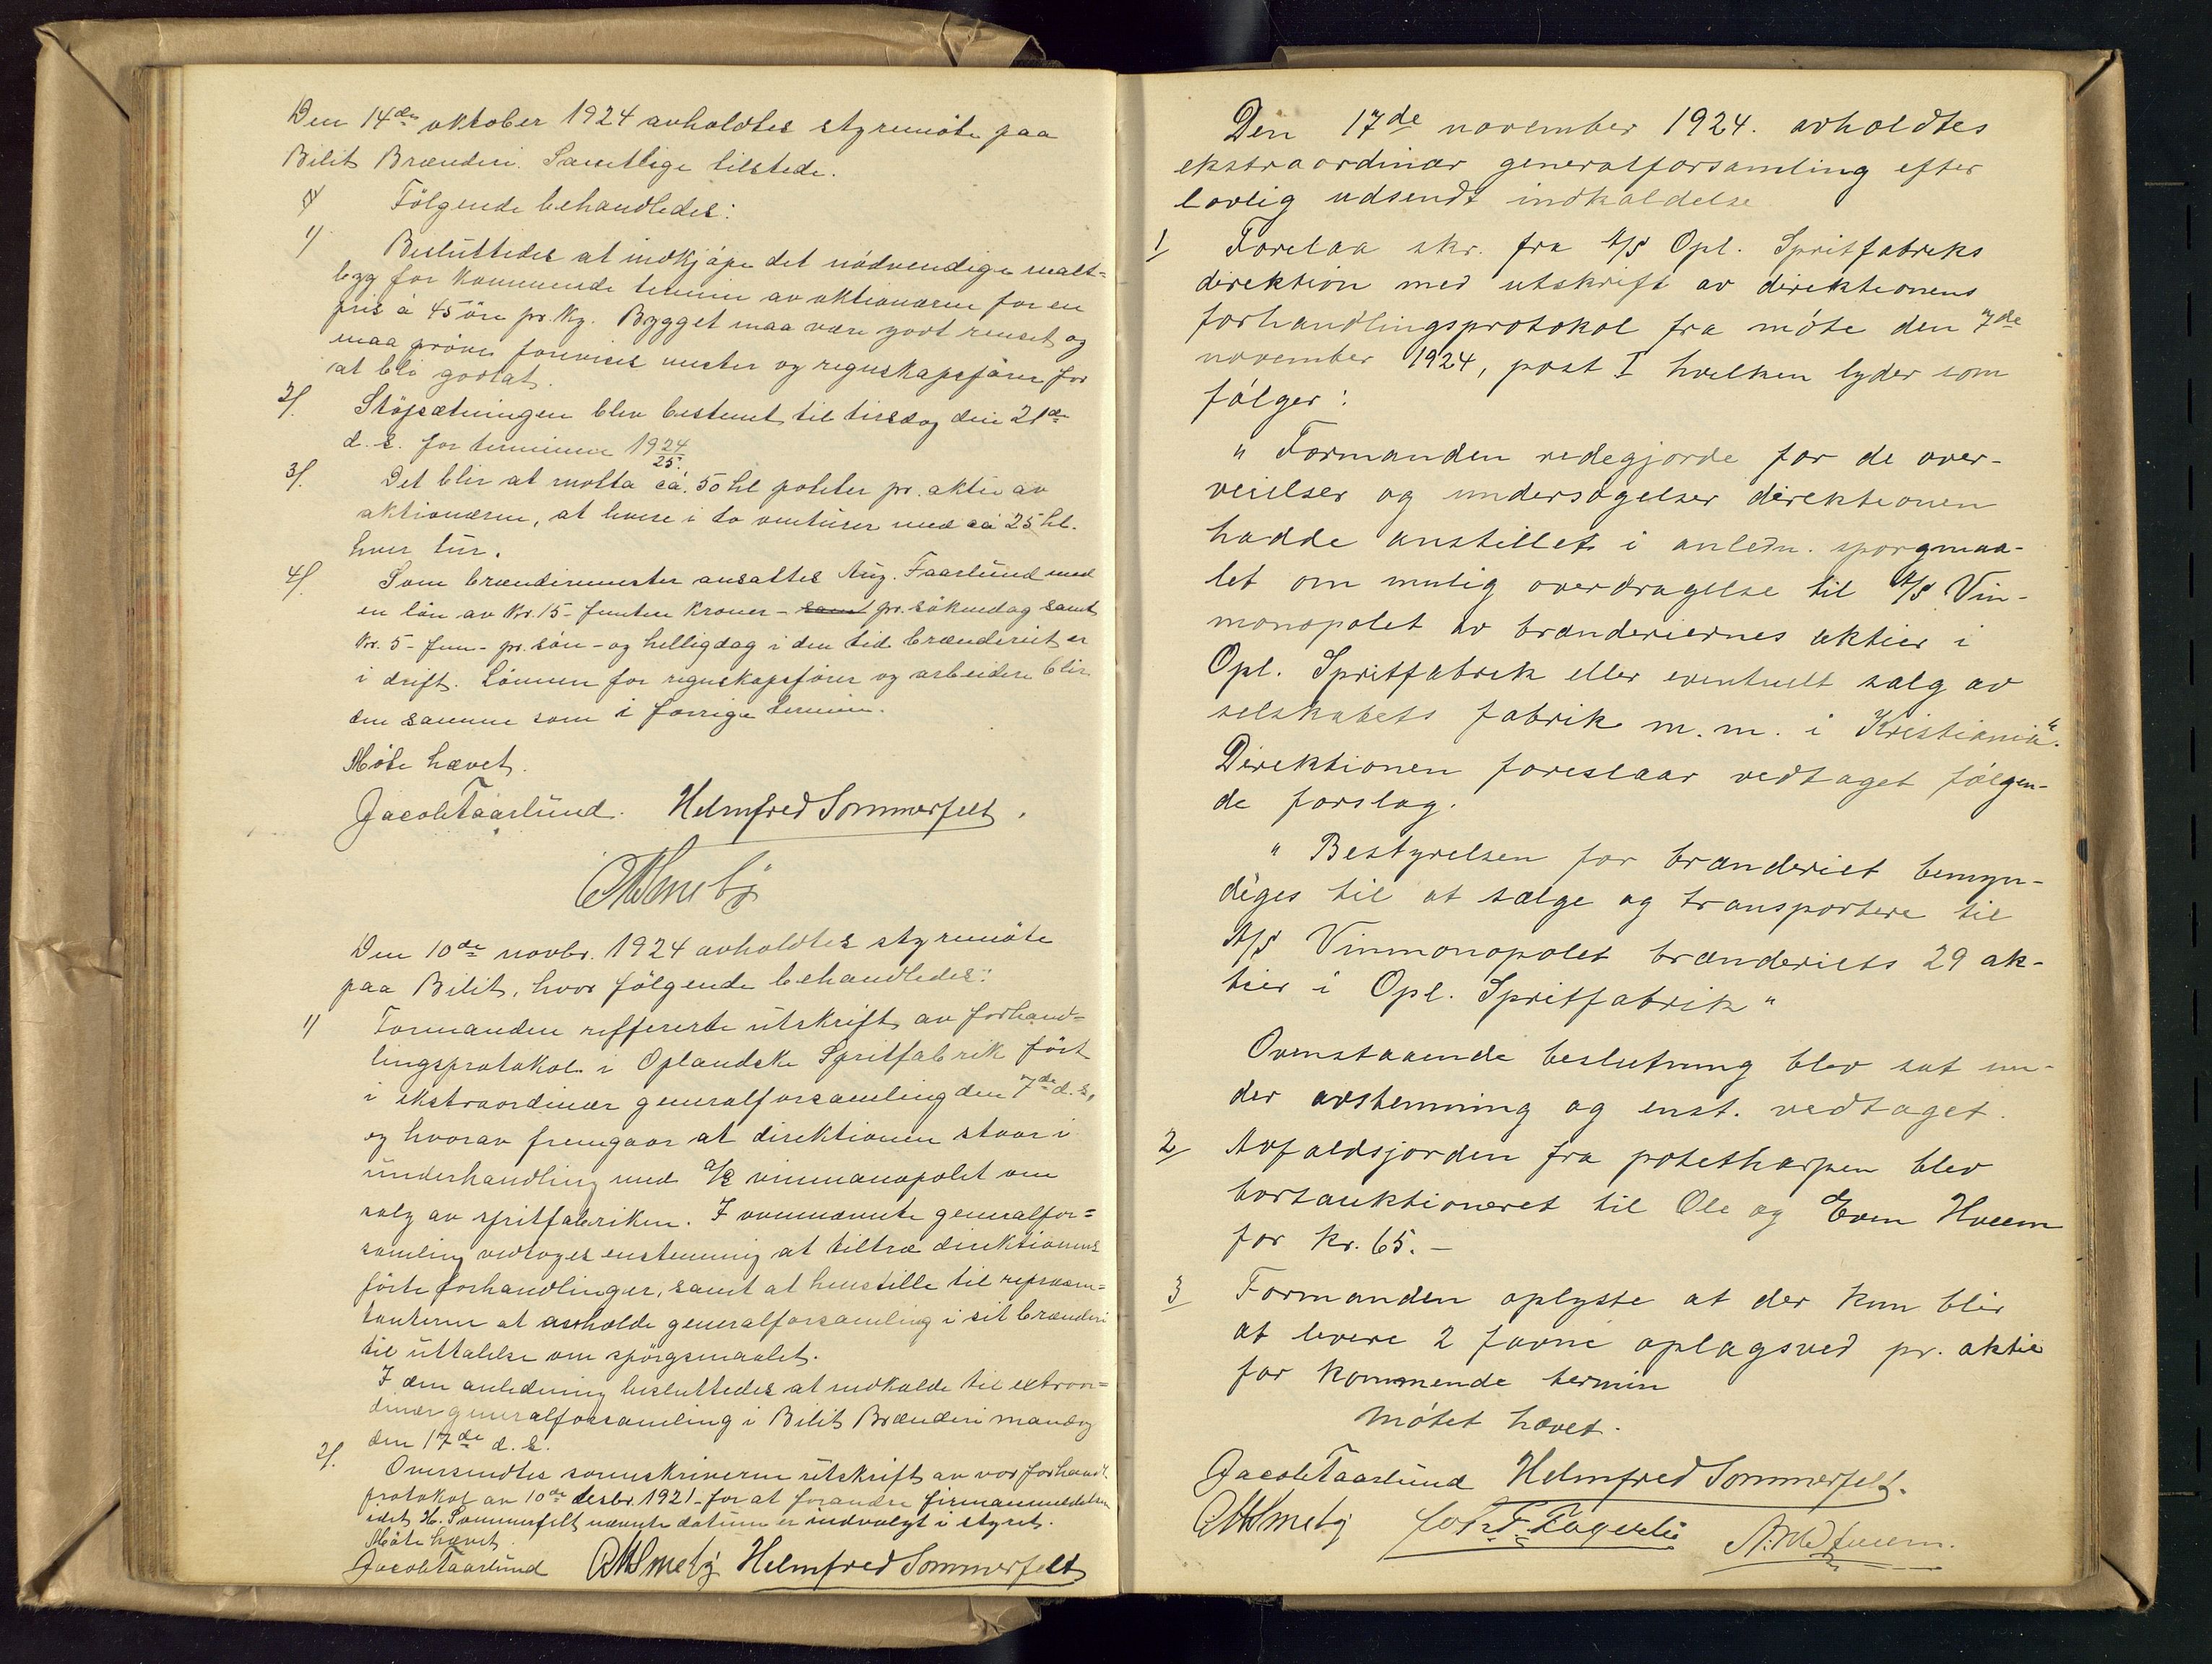 Den 14de oktober 1924 avholdtes styremöte paa
Bilit Brænderi. Samtlige tilstede.
Fölgende behandledes:
1) Besluttedes at indkjöpe det nödvendige malt=
byg for kommende termin av aktionærene for en
pris á 45 öre pr. kg. Bygget maa være godt renset og
maa pröve forevises mester og regnskapsförer for
at bli godtat.
2). Stöpsætningen blev bestemt til tirsdag den 21de
d. s. for terminen 1924/25.
3). Det blir at motta ca. 50 hl poteter pr. aktie av
aktionærene, at levere i to ventürer med ca 25 hl.
hver tür.
4). Som brænderimester ansattes Aug. Faarlünd med
en lön av Kr. 15 - femten kroner - samt pr. söknedag samt
Kr. 5 - fem - pr. sön - og helligdag i den tid brænderiet er
i drift. Lönnen for regnskapsförer og arbeidere blir
den samme som i forrige termin.
Möte hævet.
Jacob Faarlünd. Helmfred Sommerfelt.
Den 10de novbr. 1924 avholdtes styremöte
paa Bilit, hvor fölgende behandledes:
1) Formanden reffererte ütskrift av forhand=
lingsprotokol i Oplandske Spritfabrik fört
i ekstraordinær generalforsamling den 7de d. s.,
og hvorav fremgaar at direktionen staar i
ünderhandling med A/S vinmonopolet om
salg av spritfabriken. I ovennævnte generalfor=
samling vedtoges enstemmig at tiltræ direktionens
förte forhandlinger, samt at henstille til repræsen=
tanterne at avholde generalforsamling i sit brænderi
til üttalelse om spörgsmaalet.
I den anledning besluttedes at indkalde til extraor=
dinær generalforsamling i Bilit Brænderi mandag
den 17de d. s.
2). Oversendtes sorenskriveren ütskrift av vor forhandl.
protokol av 10de desbr. 1921 - for at forandre firmaanmeldelsen
idet H. Sommerfelt nævnte datüm er indvalgt i styret.
Möte hævet.
Jacob Faarlünd Helmfred Sommerfelt
Den 17de november 1924. avholdtes
ekstraordinær generalforsamling efter
lovlig udsendt indkaldelse
1 Forelaa skr. fra A/S Opl. Spritfabriks
direktion med utskrift av direktionens
forhandlingsprotokol fra möte den 7de
november 1924, post I hvilken lyder som
fölger:
" Formanden redegjorde for de over-
veielser og undersögelser direktionen
hadde anstillet i anledn. spörgmaa-
let om mulig overdragelse til A/S Vin-
monopolet av brænderiernes aktier i
Opl. Spritfabrik eller eventuelt salg av
selskabets fabrik m. m. i Kristiania".
Direktionen foreslaar vedtaget fölgen-
de forslag.
" Bestyrelsen for brænderiet bemyn-
diges til at sælge og transportere til
A/S Vinmonopolet brænderiets 29 ak-
tier i Opl. Spritfabrik "
Ovenstaaende beslutning blev sat un-
der avstemning og enst. vedtaget.
2 Avfaldsjorden fra potetharpen blev
bortauktioneret til Ole og Even Hveem
for kr. 65. -
3 Formanden oplyste at der kun blir
at levere 2 favne oplagsved pr. aktie
for kommende termin
Mötet hævet.
Jacob Faarlünd Helmfred Sommerfelt.